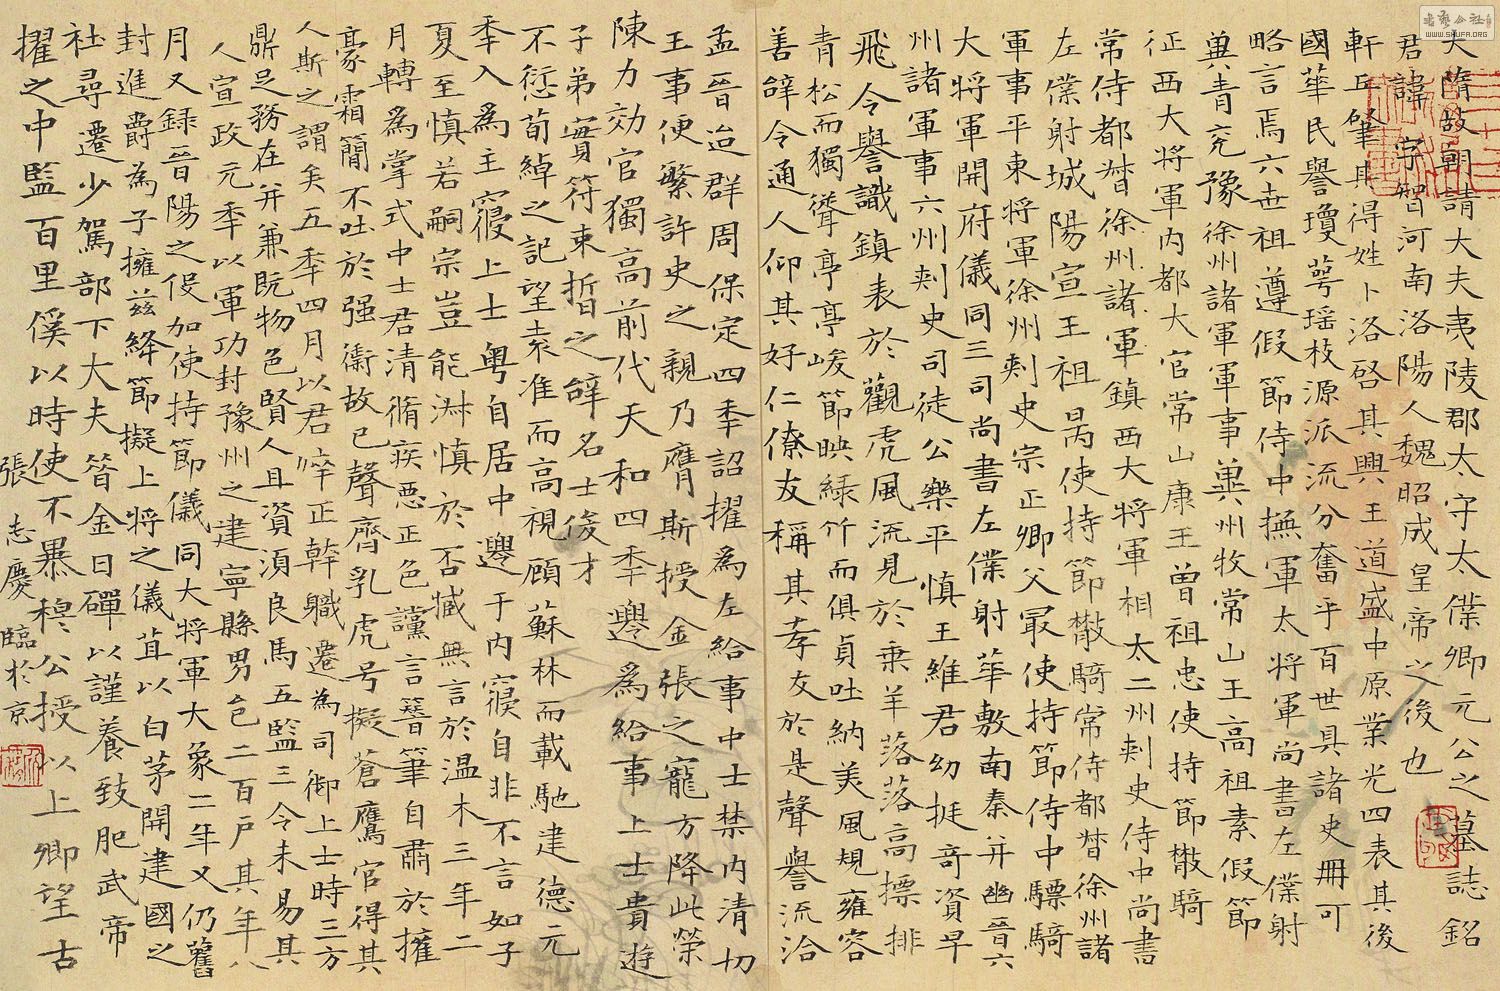 大隋故朝請大夫夷陵郡太守太僕卿元公之墓誌銘
君諱 字智河南洛陽人魏昭成皇帝之後也
軒丘肇其得姓卜洛啓其興王道盛中原業光四表其後
國華民譽瓊萼瑶枝源派流分奮乎百世具諸史冊可
略言焉六世祖遵假節侍中撫軍太將軍尚書左僕射
兾青兖豫徐州諸軍軍事兾州牧常山王高祖素假節
征西大將軍内都大官常山康王曾祖忠使持節散騎
常侍都督徐州諸軍鎮西大將軍相太二州刺史侍中尚書
左僕射城陽宣王祖昺使持節散騎常侍都督徐州諸
軍事平東将軍徐州刺史宗正卿父最使持節侍中驃騎
大將軍開府儀同三司尚書左僕射華敷南秦并幽晉六
州諸軍事六州刺史司徒公樂平慎王維君幼挺奇資早
飛令譽識鎮表於觀虎風流見於乗羊落落高摽排
青松而獨聳亭亭峻節映緑竹而俱貞吐納美風規雍容
善辭令通人仰其好仁僚友稱其孝友於是聲譽流洽
孟晉迨群周保定四秊詔擢為左給事中士禁内清切
王事便繁許史之親乃膺斯授金張之寵方降此榮
陳力効官獨高前代天和四秊遷為給事上士貴遊
子弟實符束晳之辭名士後才
不愆荀綽之記望袁准而高視顧蘇林而載馳建德元
秊入為主寝上士粤自居中遷于内寝自非不言如子
夏至慎若嗣宗豈能淋慎於否臧無言於温木三年二
月轉為掌式中士君清脩疾惡正色讜言簪筆自肅於擁
豪霜簡不吐於强衞故已聲齊乳虎号擬蒼鷹官得其
人斯之謂矣五秊四月以君倅正幹職遷為司御上士時三方
鼎足務在并兼既物色賢人且資湏良馬五監三令未易其
人宣政元秊以軍功封豫州之建寧縣男邑二百戸其年八
月又録晉陽之役加使持節儀同大將軍大象二年又仍舊
封進爵為子擁兹絳節擬上將之儀苴以白茅開建國之
社尋遷少駕部下大夫昝金日磾以謹養致肥武帝
擢之中監百里傒以時使不暴穆公授以上卿望古
張志慶臨於京